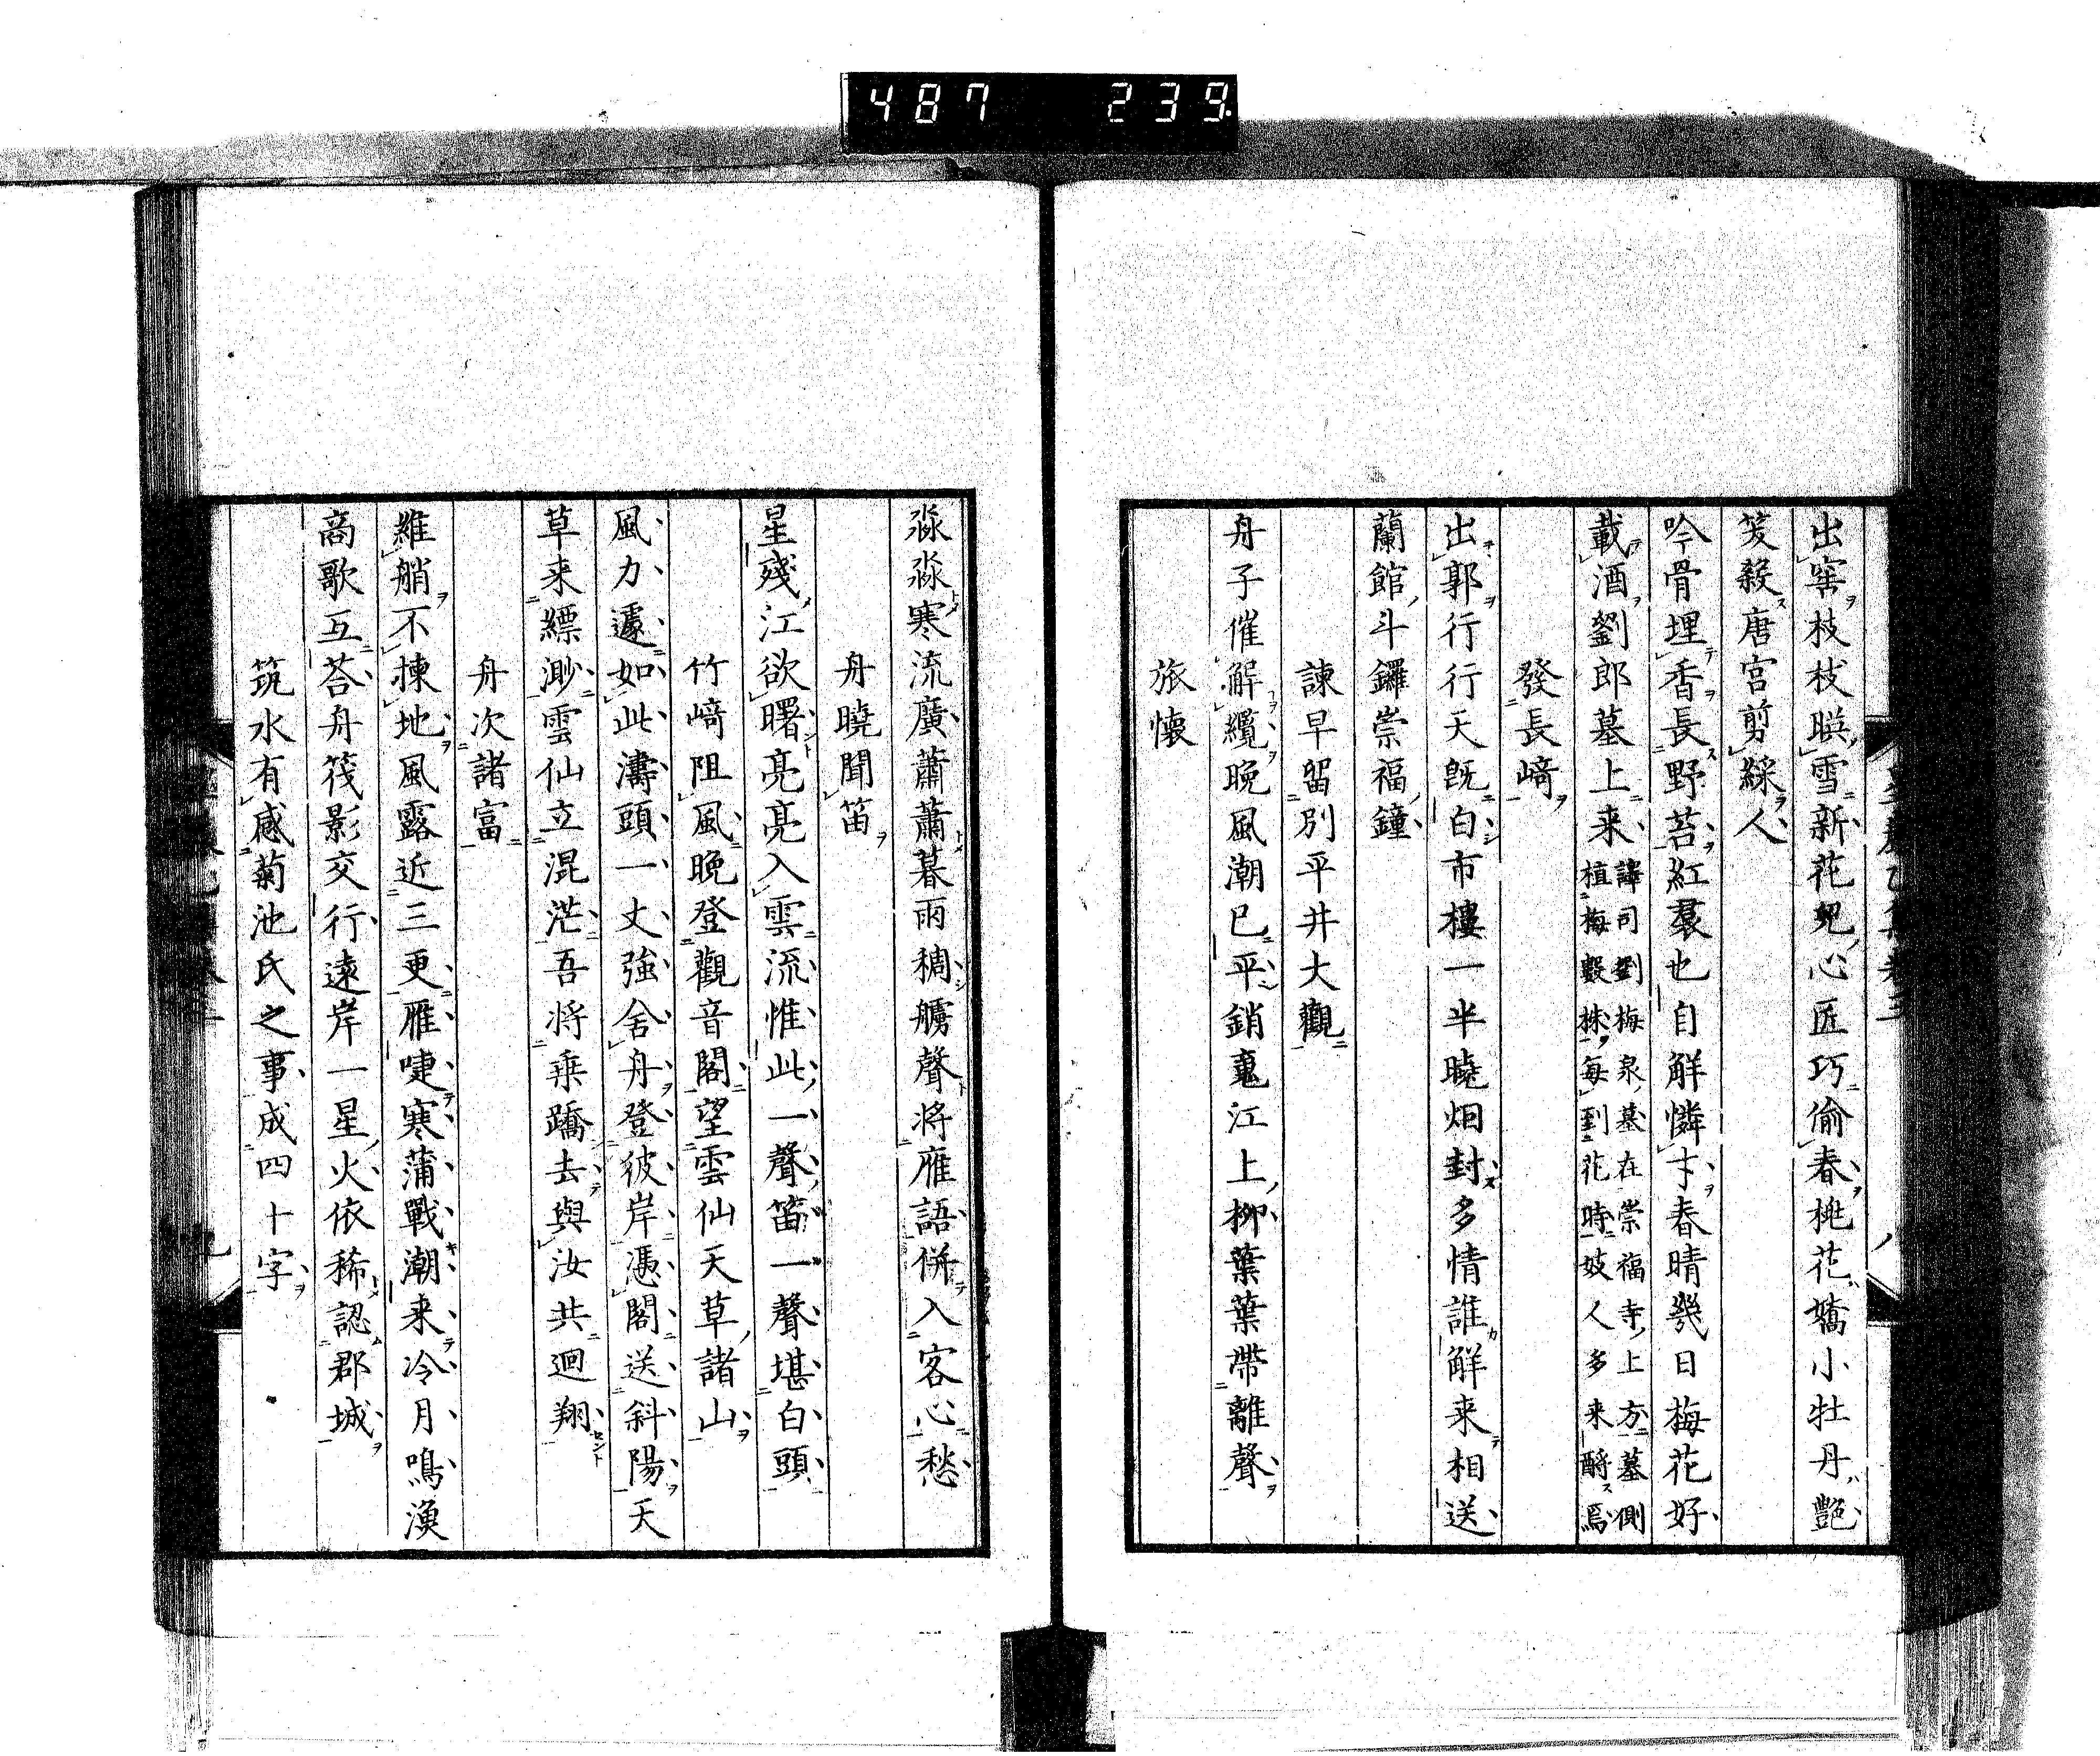 487 239
出窑枝枝暎雪新花兒心匠巧偷春桃花嬌小牡丹艶
笑殺唐宮剪綵人
吟骨埋香長野苔紅裠也自解憐才春晴幾日梅花好
載酒劉郎墓上来
譯司劉梅泉墓在崇福寺上方墓側
植梅數株每到花時妓人多来酹焉
發長﨑
出郭行行天旣白市樓一半曉烟封多情誰解来相送
蘭館斗鑼崇福鐘
諫早留別平井大觀
舟子催解纜晚風潮已平銷䰟江上柳葉葉帶離聲
旅懷
淼淼寒流廣蕭蕭暮雨稠艣聲将雁語併入客心愁
舟曉聞笛
星殘江欲曙亮亮入雲流惟此一聲笛一聲堪白頭
竹﨑阻風晚登觀音閣望雲仙天草諸山
風力遽如此濤頭一丈強舍舟登彼岸憑閣送斜陽天
草来縹渺雲仙立混茫吾将乗蹻去與汝共迴翔
舟次諸富
維艄不揀地風露近三更雁啑寒蒲戰潮来冷月鳴漁
商歌互荅舟筏影交行遠岸一星火依稀認郡城
筑水有感菊池氏之事成四十字